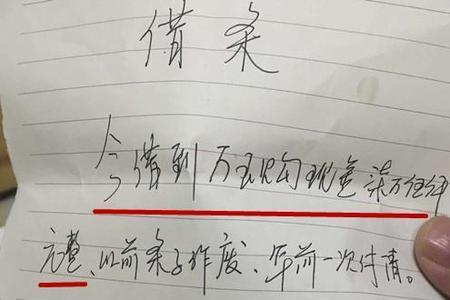 借条
今借到万现金柒万任
元整、以前条子作废、年前一次付清。